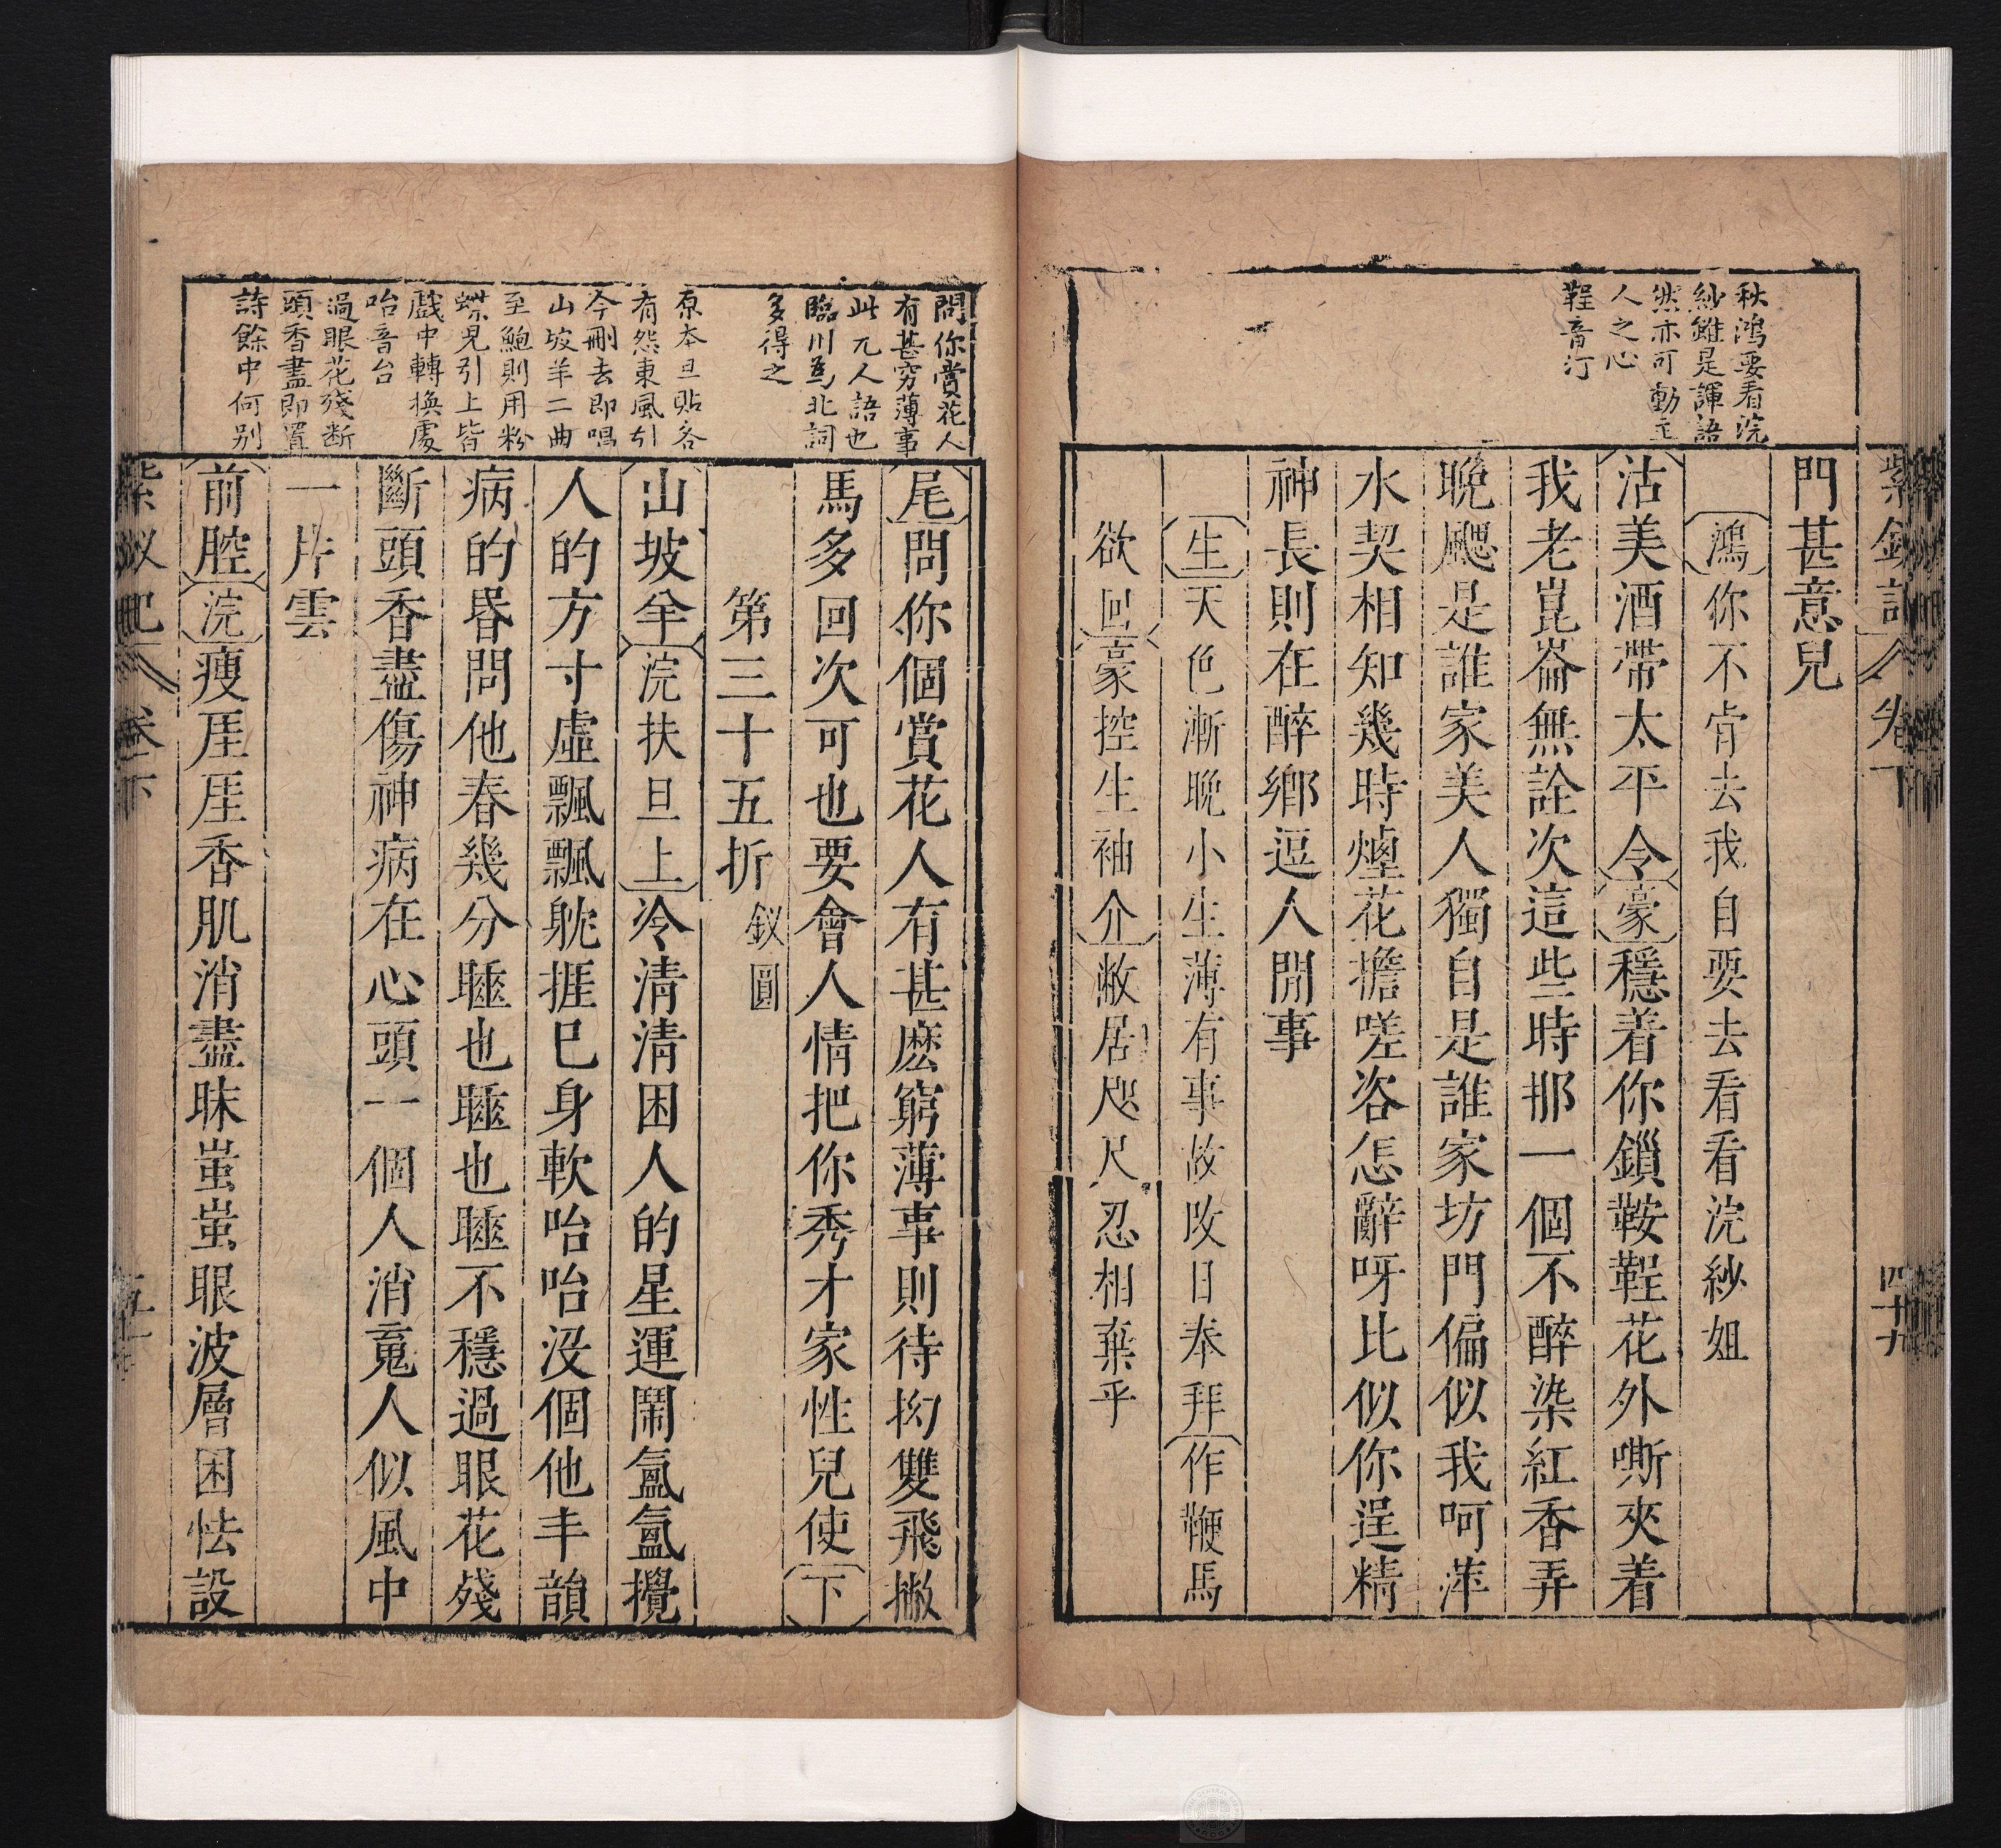 紫釵記 卷下 四十九
秋鴻要看浣
紗雖是諢語
然亦可動主
人之心
鞓音汀
門甚意兒
鴻你不肯去我自要去看看浣紗姐
沽美酒帶太平令豪穩着你鎖鞍鞓花外嘶夾着
我老崑崙無詮次這些時那一個不醉染紅香弄
晚颸是誰家美人獨自是誰家坊門偏似我呵萍
水契相知幾時煙花擔嗟咨怎辭呀比似你逞精
神長則在醉鄉逗人閒事
生天色漸晚小生薄有事故改日奉拜作鞭馬
欲回豪控生袖介敝居咫尺忍相棄乎
問你賞花人
有甚窮薄事
此兀人語也
臨川爲北詞
多得之
原本旦貼各
有怨東風引
今刪去即唱
山坡羊二曲
至鮑則用粉
蝶兒引上皆
戲中轉換處
咍音台
過眼花殘断
頭香盡即置
詩餘中何别
尾問你個賞花人有甚麽窮薄事則待拘雙飛撇
馬多回次可也要會人情把你秀才家性兒使下
第三十五折 釵圓
山坡羊浣扶旦上冷清清困人的星運鬧氳氳攪
人的方寸虛飄飄躭捱已身軟咍咍没個他丰韻
病的昏問他春幾分睡也睡也睡不穩過眼花殘
斷頭香盡傷神病在心頭一個人消䰟人似風中
一片雲
前腔浣瘦厓厓香肌消盡昧蚩蚩眼波層困怯設
紫釵記 卷下 五十